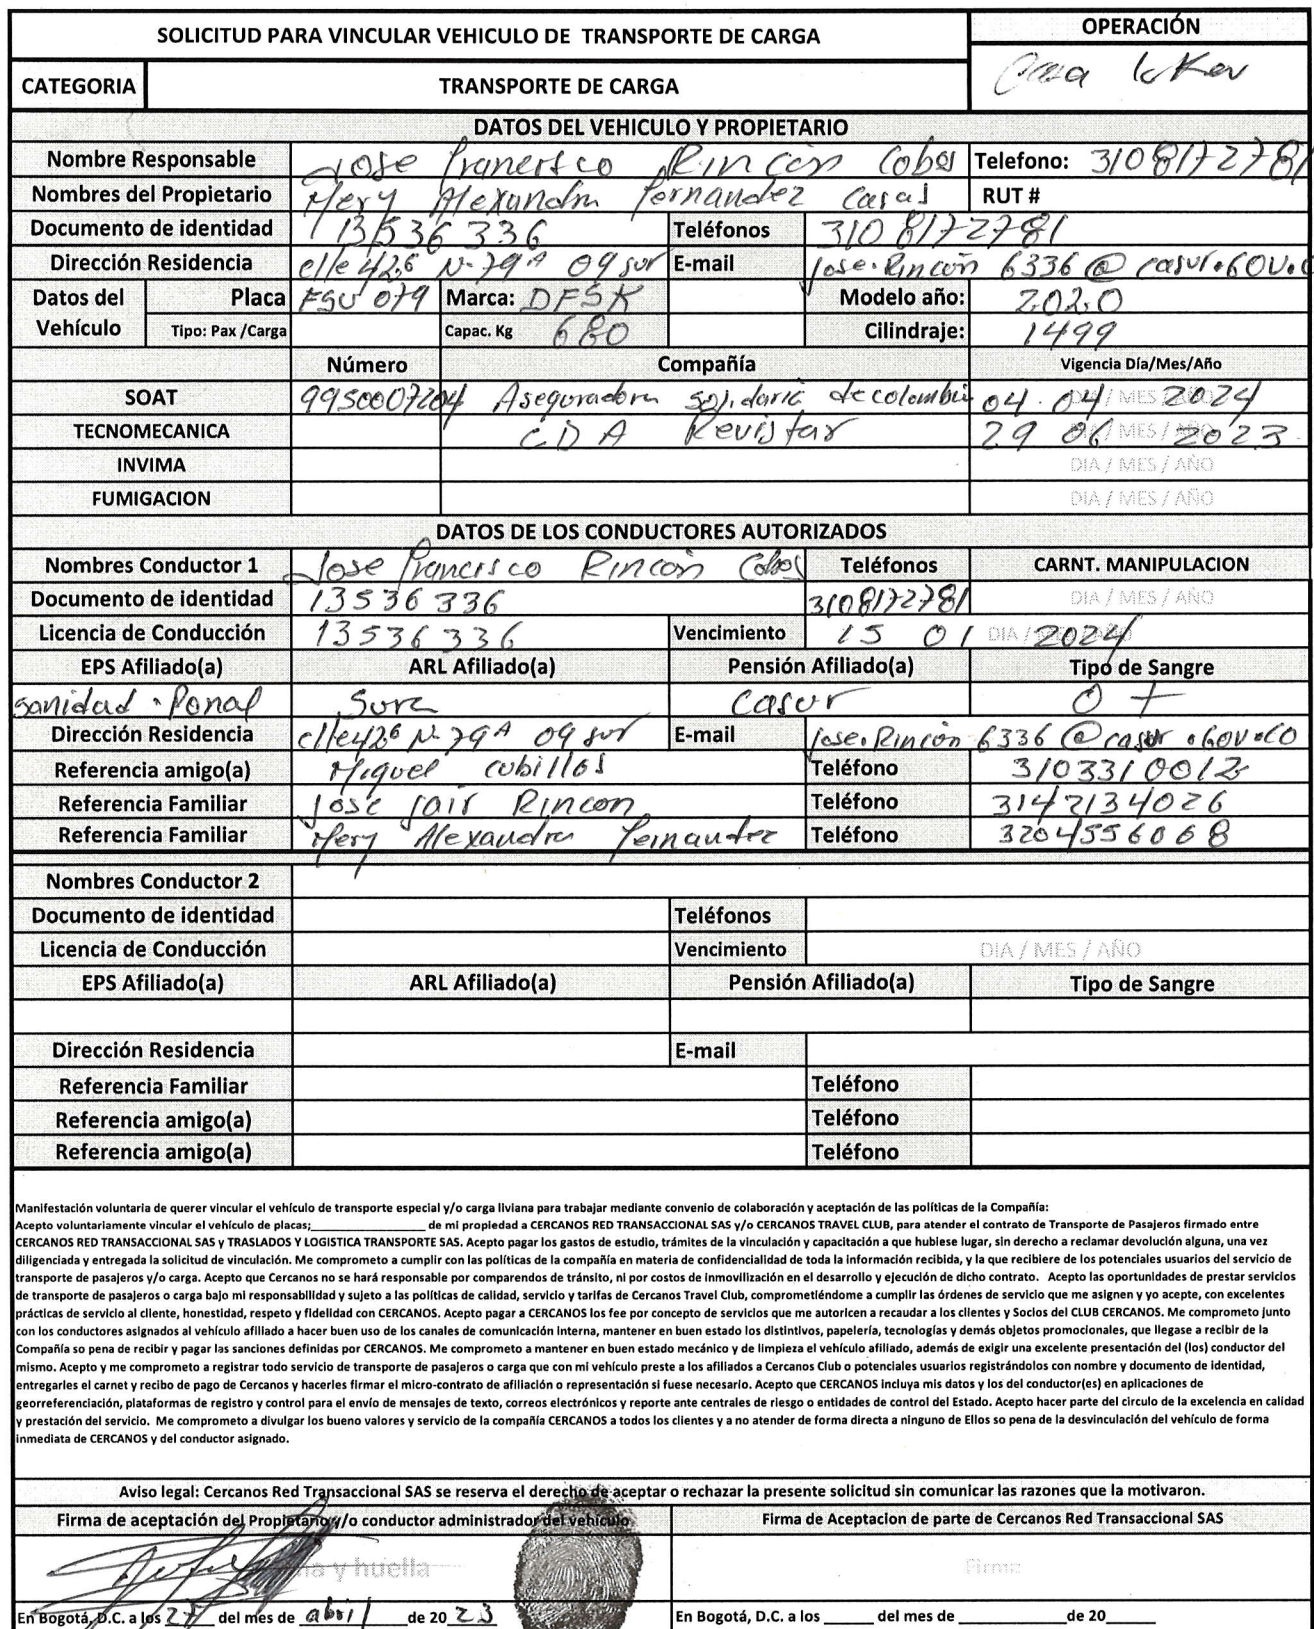 SOLICITUD PARA VINCULAR VEHICULO DE TRANSPORTE DE CARGA
OPERACIÓN
Casa loker
CATEGORIA TRANSPORTE DE CARGA
DATOS DEL VEHICULO Y PROPIETARIO
Nombre Responsable Jose Francisco Rincón Cobos Telefono: 3108172781
Nombres del Propietario Mery Alexandra Fernandez Casas RUT #
Documento de identidad 13536336 Teléfonos 3108172781
Dirección Residencia clle 42 G N- 79 A 09 sur E-mail Jose.Rincón 6336@casur.GOV.C
Datos del Vehículo Placa ESU 079 Marca: DFSK Modelo año: 2020
Tipo: Pax /Carga Capac. Kg 680 Cilindraje: 1499
Número Compañía Vigencia Día/Mes/Año
SOAT 9950007204 Aseguradora solidaria de colombia 04 04 2024 DIA / MES / AÑO
TECNOMECANICA CDA Revistar 29 06 2023 DIA / MES / AÑO
INVIMA DIA / MES / AÑO
FUMIGACION DIA / MES / AÑO
DATOS DE LOS CONDUCTORES AUTORIZADOS
Nombres Conductor 1 Jose Francisco Rincón Cobos Teléfonos CARNT. MANIPULACION
Documento de identidad 13536336 3108172781 DIA / MES / AÑO
Licencia de Conducción 13536336 Vencimiento 15 01 2024 DIA / MES / AÑO
EPS Afiliado(a) ARL Afiliado(a) Pensión Afiliado(a) Tipo de Sangre
sanidad . Ponal Sura casur O +
Dirección Residencia clle 42 G N- 79 A 09 sur E-mail Jose.Rincón 6336@casur.GOV.CO
Referencia amigo(a) Miguel cubillos Teléfono 3103310012
Referencia Familiar Jose Jair Rincon Teléfono 3142134026
Referencia Familiar Mery Alexandra Fernandez Teléfono 3204556068
Nombres Conductor 2
Documento de identidad Teléfonos
Licencia de Conducción Vencimiento DIA / MES / AÑO
EPS Afiliado(a) ARL Afiliado(a) Pensión Afiliado(a) Tipo de Sangre
Dirección Residencia E-mail
Referencia Familiar Teléfono
Referencia amigo(a) Teléfono
Referencia amigo(a) Teléfono
Manifestación voluntaria de querer vincular el vehículo de transporte especial y/o carga liviana para trabajar mediante convenio de colaboración y aceptación de las políticas de la Compañía:
Acepto voluntariamente vincular el vehículo de placas;____________________ de mi propiedad a CERCANOS RED TRANSACCIONAL SAS y/o CERCANOS TRAVEL CLUB, para atender el contrato de Transporte de Pasajeros firmado entre
CERCANOS RED TRANSACCIONAL SAS y TRASLADOS Y LOGISTICA TRANSPORTE SAS. Acepto pagar los gastos de estudio, trámites de la vinculación y capacitación a que hubiese lugar, sin derecho a reclamar devolución alguna, una vez
diligenciada y entregada la solicitud de vinculación. Me comprometo a cumplir con las políticas de la compañía en materia de confidencialidad de toda la información recibida, y la que recibiere de los potenciales usuarios del servicio de
transporte de pasajeros y/o carga. Acepto que Cercanos no se hará responsable por comparendos de tránsito, ni por costos de inmovilización en el desarrollo y ejecución de dicho contrato. Acepto las oportunidades de prestar servicios
de transporte de pasajeros o carga bajo mi responsabilidad y sujeto a las políticas de calidad, servicio y tarifas de Cercanos Travel Club, comprometiéndome a cumplir las órdenes de servicio que me asignen y yo acepte, con excelentes
prácticas de servicio al cliente, honestidad, respeto y fidelidad con CERCANOS. Acepto pagar a CERCANOS los fee por concepto de servicios que me autoricen a recaudar a los clientes y Socios del CLUB CERCANOS. Me comprometo junto
con los conductores asignados al vehículo afiliado a hacer buen uso de los canales de comunicación interna, mantener en buen estado los distintivos, papelería, tecnologías y demás objetos promocionales, que llegase a recibir de la
Compañía so pena de recibir y pagar las sanciones definidas por CERCANOS. Me comprometo a mantener en buen estado mecánico y de limpieza el vehículo afiliado, además de exigir una excelente presentación del (los) conductor del
mismo. Acepto y me comprometo a registrar todo servicio de transporte de pasajeros o carga que con mi vehículo preste a los afiliados a Cercanos Club o potenciales usuarios registrándolos con nombre y documento de identidad,
entregarles el carnet y recibo de pago de Cercanos y hacerles firmar el micro-contrato de afiliación o representación si fuese necesario. Acepto que CERCANOS incluya mis datos y los del conductor(es) en aplicaciones de
georreferenciación, plataformas de registro y control para el envío de mensajes de texto, correos electrónicos y reporte ante centrales de riesgo o entidades de control del Estado. Acepto hacer parte del circulo de la excelencia en calidad
y prestación del servicio. Me comprometo a divulgar los bueno valores y servicio de la compañía CERCANOS a todos los clientes y a no atender de forma directa a ninguno de Ellos so pena de la desvinculación del vehículo de forma
inmediata de CERCANOS y del conductor asignado.
Aviso legal: Cercanos Red Transaccional SAS se reserva el derecho de aceptar o rechazar la presente solicitud sin comunicar las razones que la motivaron.
Firma de aceptación del Propietario y/o conductor administrador del vehiculo Firma de Aceptacion de parte de Cercanos Red Transaccional SAS
y huella Firma
En Bogotá, D.C. a los 27 del mes de abril de 20 23 En Bogotá, D.C. a los ______ del mes de ____________ de 20______